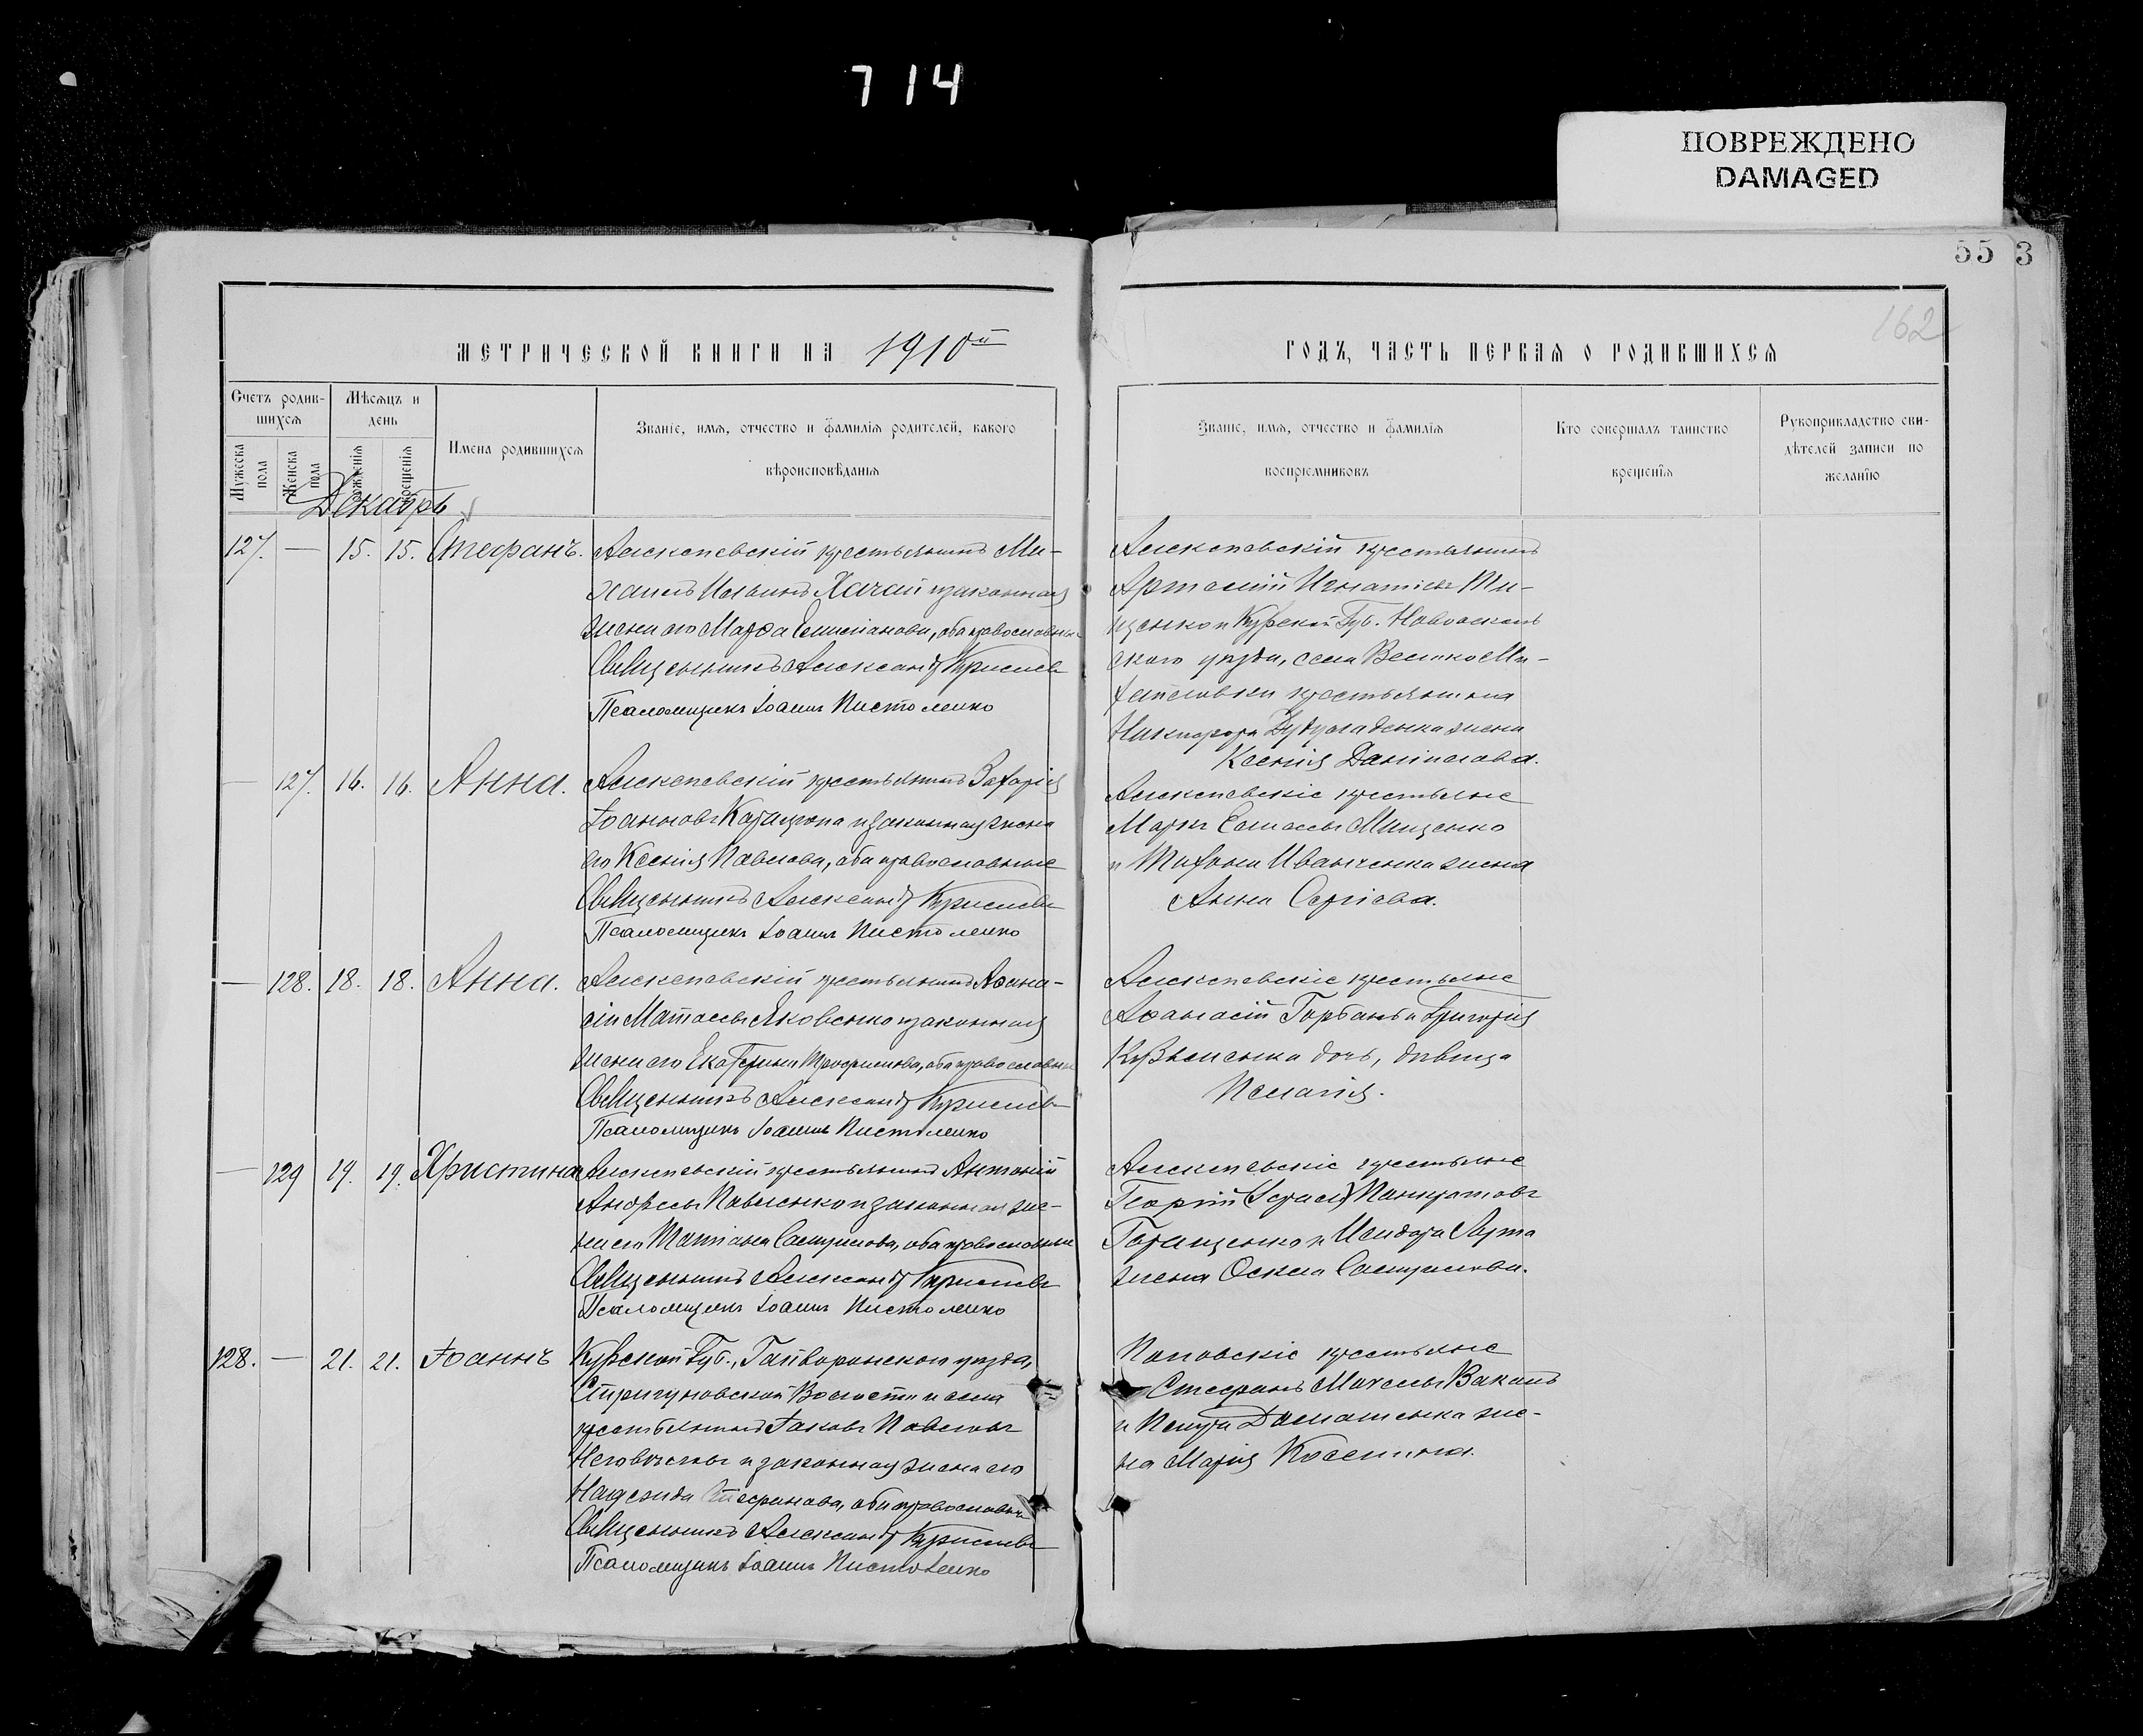 714
ПОВРЕЖДЕНО
DAMAGED
553
162
МЕТРИЧЕСКОЙ КНИГИ НА 1910й
ГОДЪ, ЧАСТЬ ПЕРВАЯ О РОДИВШИХСЯ
Счетъ родив-
шихся
Мѣсяцъ и
день
Мужеска
пола
Женска
пола
рожденія
крещенія
Имена родившихся
Званіе, имя, отчество и фамилія родителей, какого
вѣроисповѣданія
Званіе, имя, отчество и фамилія
воспріемниковъ
Кто совершалъ таинство
крещенія
Рукоприкладство сви-
дѣтелей записи по
желанію
Декабрь
127. — 15. 15. Стефанъ.
Алексѣевскій крестьянинъ Ми-
хаилъ Ильинъ Хачай и законная
жена его Марѳа Емиліанова, оба православные
Священникъ Александръ
Псаломщикъ Іоаннъ Пистоленко
Алексѣевскій крестьянинъ
Артемій Игнатіевъ Ти-
щенко и Курской Губ. Новооскол
скаго уѣзда, села ВеликоМи-
хайловки крестьянина
Никифора жена
Ксенія Даніилова.
— 127. 16. 16. Анна.
Алексѣевскій крестьянинъ Захарія
Іоанновъ и законная жена
его Ксенія Павлова, оба православные
Священникъ Александръ
Псаломщикъ Іоаннъ Пистоленко
Алексѣевскіе крестьяне
Маркъ Мищенко
и Тихона Иванченка жена
Анна Сергіева.
— 128. 18. 18. Анна.
Алексѣевскій крестьянинъ Аѳана-
сій Яковенко и законная
жена его Екатерина Трофимова, оба православные
Священникъ Александръ
Псаломщикъ Іоаннъ Пистоленко
Алексѣевскіе крестьяне
Аѳанасій Горбань и Григорія
Кузьменка дочь, дѣвица
Пелагія.
— 129 19. 19. Христина
Алексѣевскій крестьянинъ Антоній
Андреевъ Павленко и законная же-
на его Татіана Самуилова, оба православные
Священникъ Александръ
Псаломщикъ Іоаннъ Пистоленко
Алексѣевскіе крестьяне
Георгій Панкратовъ
и Исидора
жена Самуилова.
128. — 21. 21. Іоаннъ
Курской Губ., Гайворонскаго уѣзда,
Стригуновской Волости и села
крестьянинъ Іаковъ Павловъ
и законная жена его
Надежда Стефанова, оба православные
Священникъ Александръ
Псаломщикъ Іоаннъ Пистоленко
Поповскіе крестьяне
Стефанъ
и Петра же-
на Марія